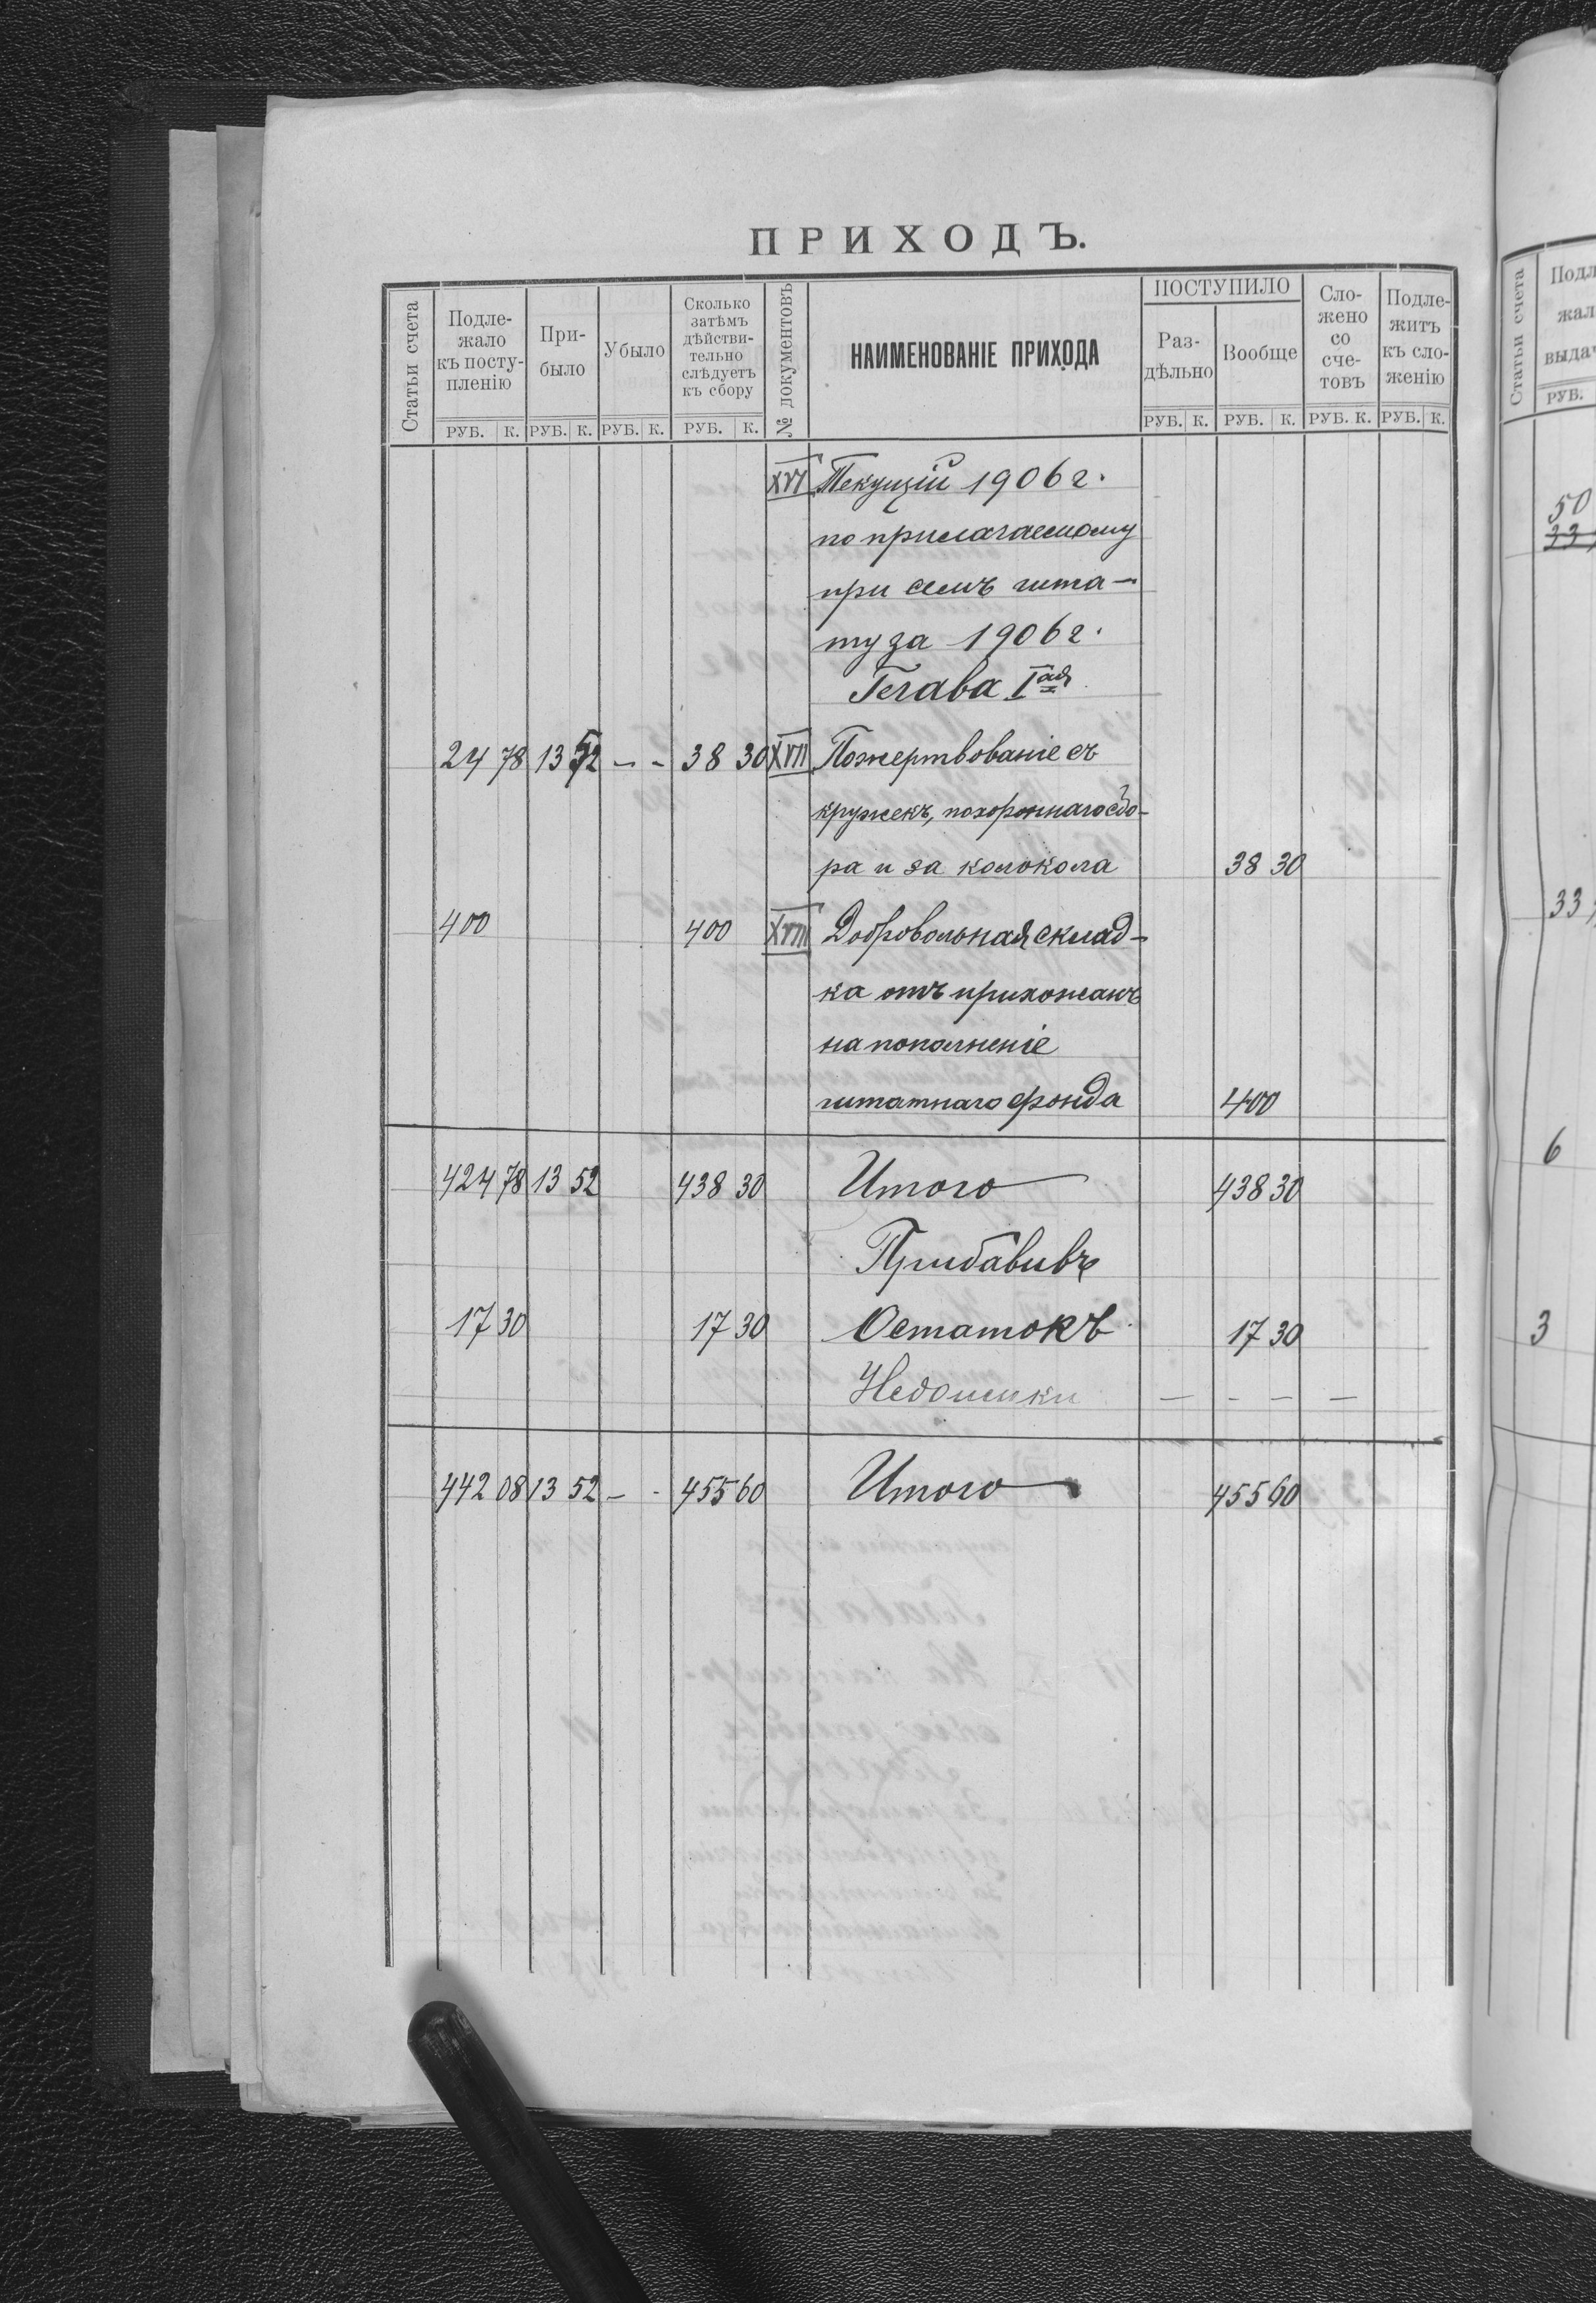 ПРИХОДЪ.
Статьи счета
Подле-
жало
къ посту-
пленію
При-
было
Убыло
Сколько
затѣмъ
дѣйстви-
тельно
слѣдуетъ
къ сбору
№ документовъ
НАИМЕНОВАНІЕ ПРИХОДА
ПОСТУПИЛО
Раз-
дѣльно
Вообще
Сло-
жено
со
сче-
товъ
Подле-
житъ
къ сло-
женію
РУБ. К. РУБ. К. РУБ. К. РУБ. К. РУБ. К. РУБ. К. РУБ. К. РУБ. К.
XVI Текущій 1906 г.
по прилагаемому
при семъ шта-
ту за 1906 г.
Глава Iая
24 78 13 52 - - 38 30 XVII Пожертвованіе съ
кружекъ, похороннаго сбо-
ра и за колокола 38 30
400 400 XVIII Добровольная склад-
ка отъ прихожанъ
на пополненіе
штатнаго фонда 400
424 78 13 52 438 30 Итого 438 30
Прибавивъ
17 30 17 30 Остатокъ 17 30
Недоимки - - - -
442 08 13 52 - - 455 60 Итого 455 60
Статьи счета
Подл
жал
выдач
РУБ.
50
33
33
6
3